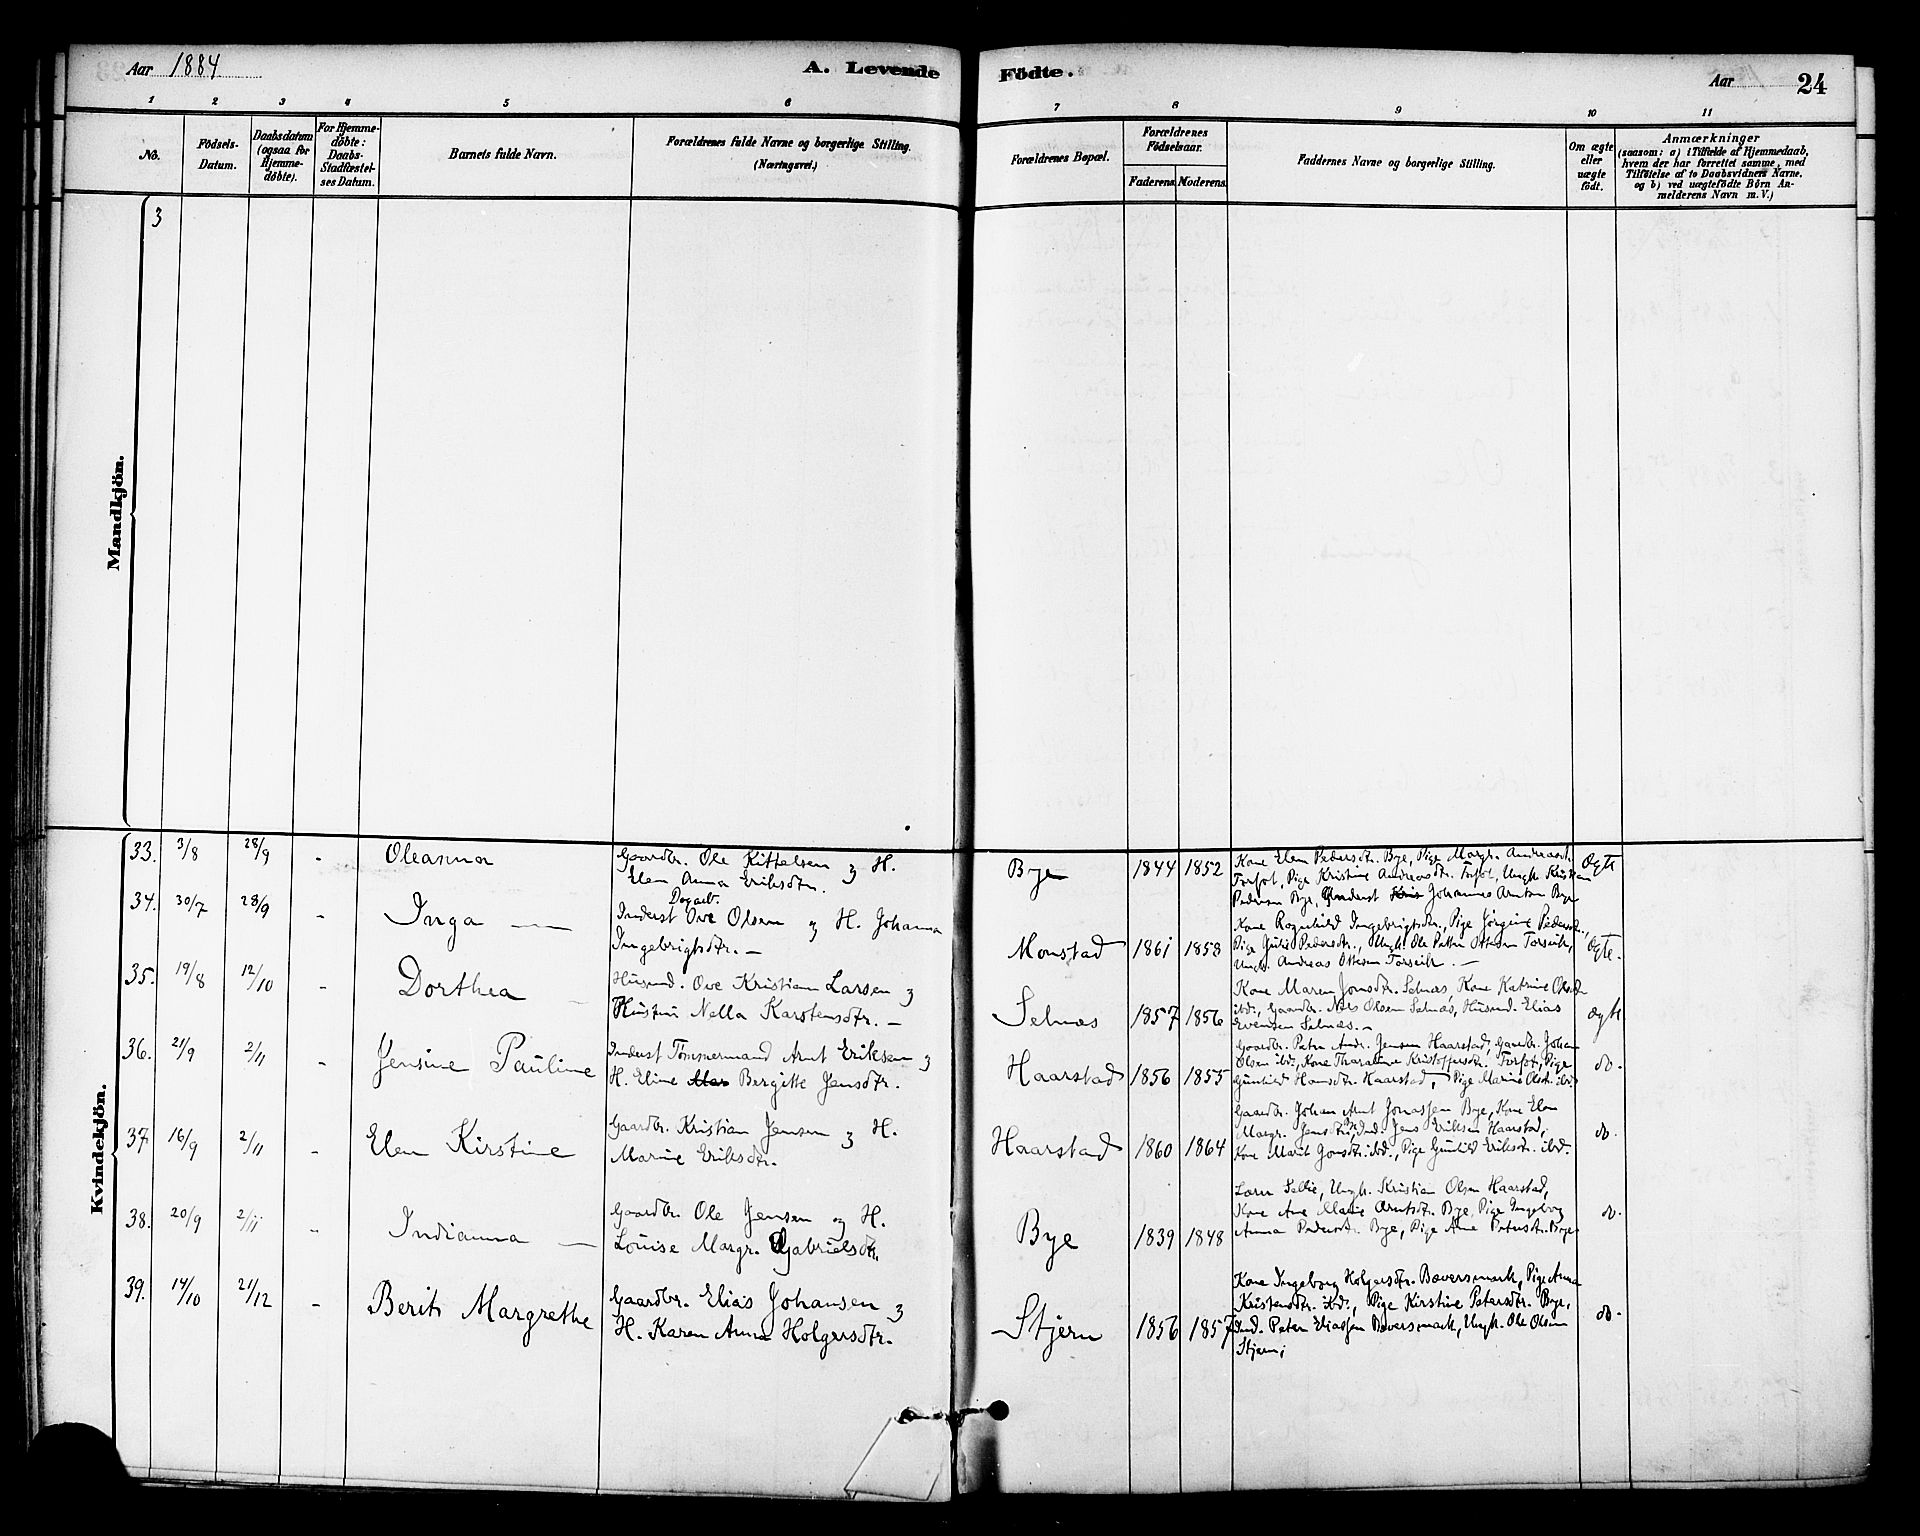 Aar 1884 A. Levende Födte. Aar 24
1 2 3 4 5 6 7 8 9 10 11
No. Födsels-Datum. Daabsdatum (ogsaa for Hjemmedöbte). For Hjemmedöbte: Daabs-Stadfæstelses Datum. Barnets fulde Navn. Forældrenes fulde Navne og borgerlige Stilling. (Næringsvei.) Forældrenes Bopæl. Forældrenes Födselsaar. Faderens. Moderens. Faddernes Navne og borgerlige Stilling. Om ægte eller uægte födt. Anmærkninger (saasom: a) i Tilfælde af Hjemmedaab, hvem der har forrettet samme, med Tilföielse af to Daabsvidners Navne, og b) ved uægtefödte Börn Anmelderens Navn m.V.)
Mandkjön.
3
Kvindekjön.
33. 3/8 28/9 - Oleanna
Gaardbr. Ole Kittelsen og H.
Elen Anna Eriksdtr.
Bye 1844 1852
Kone Elen Pedersdtr. Bye, Pige Margr. Andreasdtr.
Forfot, Pige Kristine Andreasdtr. Forfot, Ungk. Kristian
Pedersen Bye, Inderst Johannes Arntsen Bye
Ægte
34. 30/7 28/9 - Inga —
Dagarb.
Inderst Ove Olsen og H. Johanna
Ingebrigtsdtr. —
Monstad 1861 1858
Kone Ragnhild Ingebrigtsdtr., Pige Jörgine Pedersdtr.,
Pige Julie Pedersdtr., Ungk. Ole Petter Ottesen Forseth,
Ungk. Andreas Ottesen Forseth. —
Ægte.
35. 19/8 12/10 - Dorthea —
Husmd. Ove Kristian Larsen og
Hustru Nella Karstensdtr. —
Selnæs 1857 1856
Kone Maren Jonsdtr. Selnæs, Kone Katrine Olsdtr
ibd., Gaardbr. Nels Olsen Selnæs, Husmd. Elias
Evensen Selnæs. —
ægte
36. 21/9 2/11 - Jensine Pauline
Inderst Tömmermand Arnt Eriksen og
H. Eline Bergitte Jensdtr.
Haarstad 1856 1855
Gaardbr. Peter Andr. Jensen Haarstad, Gaardbr. Johan
Olsen ibd., Kone Kristoffersdtr. Forfot, Pige
Gunhild Hansdtr. Haarstad, Pige Marine Olsdtr. ibd.
do.
37. 16/9 2/11 - Elen Kirstine
Gaardbr. Kristian Jensen og H.
Marine Eriksdtr.
Haarstad 1860 1864
Gaardbr. Johan Arnt Jonassen Bye, Kone Elen
Margr. Jensdtr. ibd., Ind. Jens Eriksen Haarstad,
Kone Marit Jonsdtr. ibd., Pige Gunhild Eriksdtr. ibd.
do.
38. 20/9 2/11 - Indianna —
Gaardbr. Ole Jensen og H.
Louise Margr. Gabrielsdtr.
Bye 1839 1848
Lærer Sellie, Ungk. Kristian Olsen Haarstad,
Kone Ane Marie Arntsdtr. Bye, Pige Ingeborg
Anna Pedersdtr. Bye, Pige Ane Petersdtr. Bye
do.
39. 14/10 21/12 - Berit Margrethe
Gaardbr. Elias Johansen og
H. Karen Anna Holgersdtr.
Stjern 1856 1857
Kone Ingeborg Holgersdtr. Bøversmark, Pige Anna
Kristensdtr. ibd., Pige Kirstine Petersdtr. Bye,
Ind. Peter Eliassen Bøversmark, Ungk. Ole Olsen
Stjern;
do.